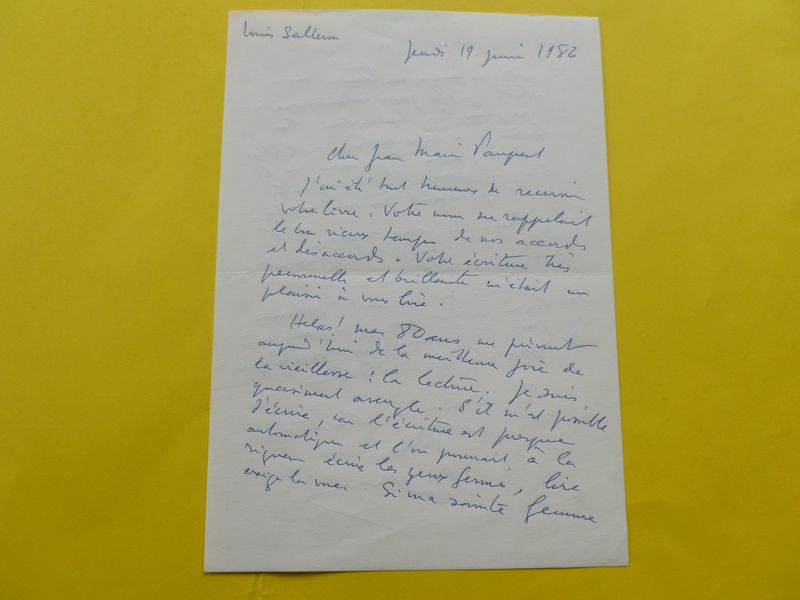 Louis Salleron
jeudi 19 juin 1986
Cher Jean Marie Paupert
J'ai été tout heureux de recevoir
votre livre. Votre nom me rappelait
le bon vieux temps de nos accords
et désaccords. Votre écriture très
personnelle et brillante m'était un
plaisir à vous lire.
Helas! mes 80 ans me privent
aujourd'hui de la meilleure joie de
la vieillesse : la lecture. Je suis
quasiment aveugle. S'il m'est possible
d'écrire, car l'écriture est presque
automatique et l'on pourrait à la
rigueur écrire les yeux fermé, lire
exige la vue. Si ma sainte femme